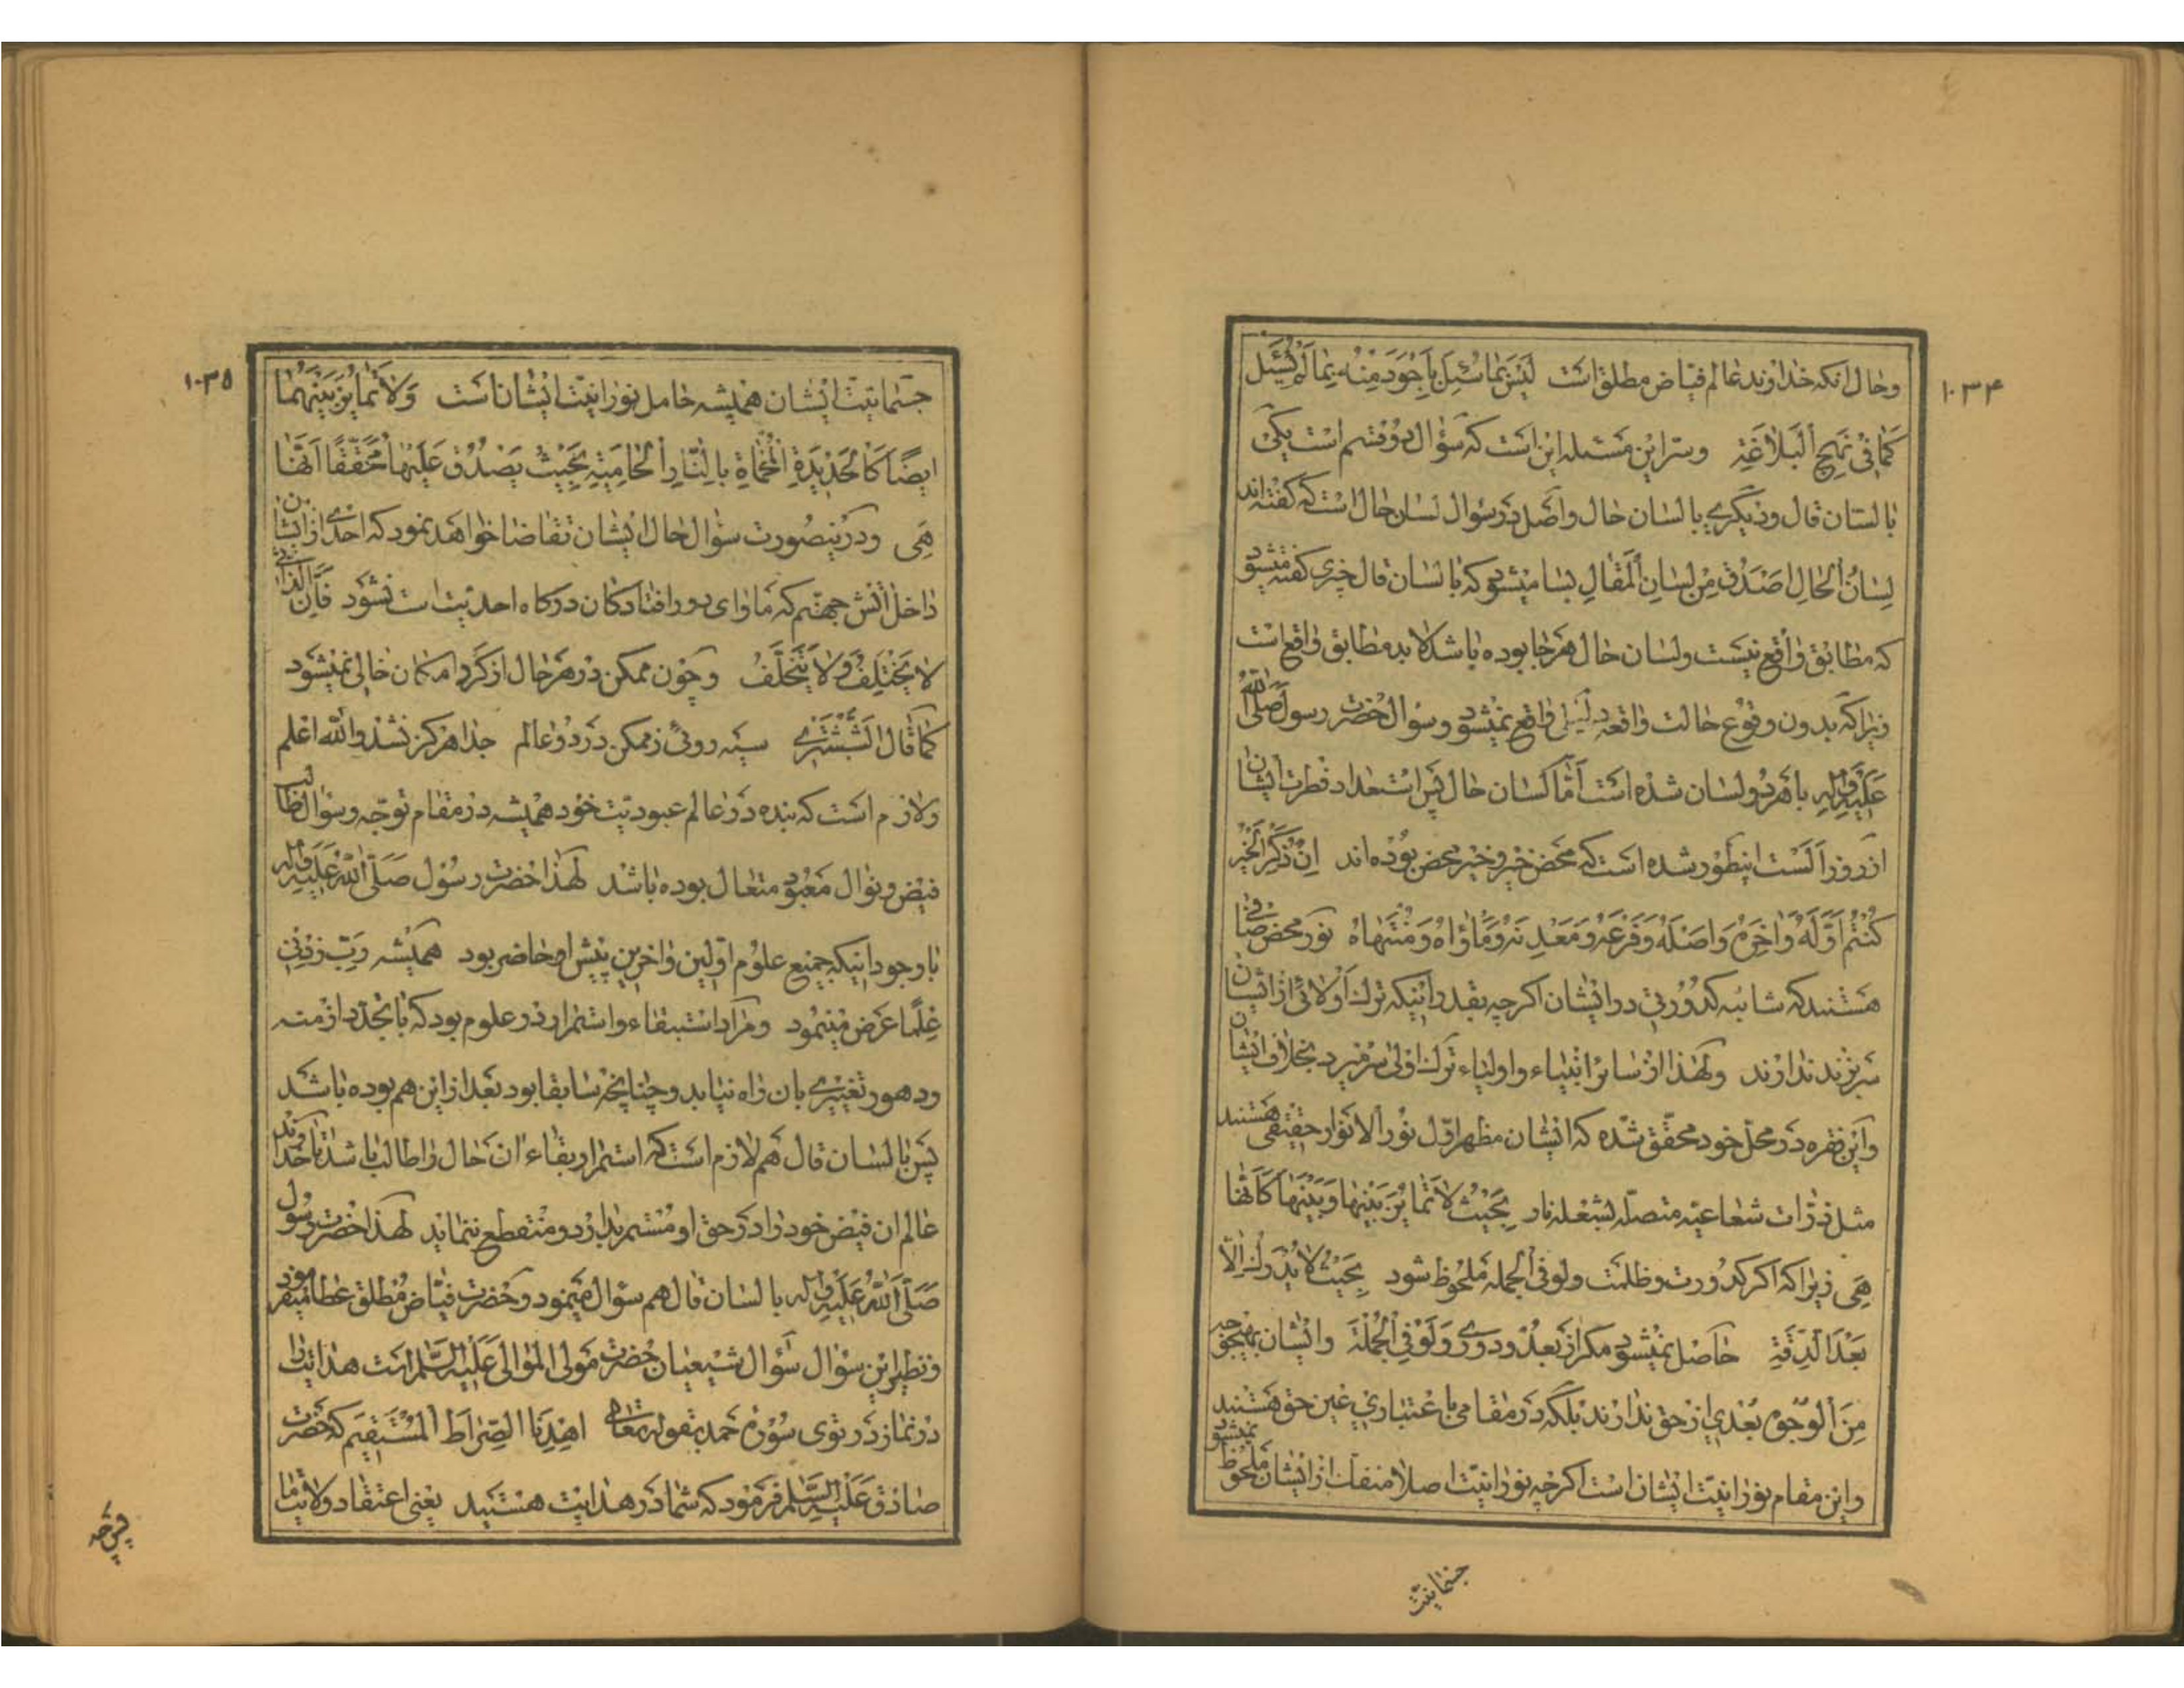 ۱۰۳۴
وحال انکه خداوند عالم فیّاض مطلق است لَیْسَ بِمَا سُئِلَ بِاَجْوَدَ مِنْهُ بِمَا لَمْ یُسْئَل
کَمَا فِی نَهْجِ الْبَلَاغَةِ وسرّ این مسئله این است که سؤال دو قسم است یکی
با لسان قال ودیگری با لسان حال واصل در سؤال لسان حال است که گفته اند
لِسَانُ الْحَالِ اَصْدَقُ مِنْ لِسَانِ الْمَقَالِ بسا میشود که با لسان قال خبری گفته میشود
که مطابق واقع نیست ولسان حال هر جا بوده باشد لابد مطابق واقع است
زیرا که بدون وقوع حالت واقعه دلیل واقع نمیشود وسؤال حضرت رسول صَلَّی اللّٰهُ
عَلَیْهِ وَآلِهِ با هر دو لسان شده است اَمّا لسان حال پس استعداد فطرت ایشان
از روز اَلَسْت اینطور شده است که محض خیر وخیر محض بوده اند اِنْ ذُکِرَ الْخَیْرُ
کُنْتُمْ اَوَّلَهُ وَاٰخِرَهُ وَاَصْلَهُ وَفَرْعَهُ وَمَعْدِنَهُ وَمَأْوَاهُ وَمُنْتَهَاهُ نور محض صافی
هستند که شائبه کدورتی در ایشان اگرچه بقدر اینکه ترک اَولائی از ایشان
سر بزند ندارند ولهٰذا از سائر انبیاء واولیاء ترک اولی سر میزد بخلاف ایشان
واین فقره در محلّ خود محقّق شده که ایشان مظهر اوّل نور الانوار حقیقی هستند
مثل ذرّات شعاعیّه متصلّه بشعله نار بِحَیْثُ لاَ تَمَایُزَ بَیْنَهَا وَبَیْنَهَا کَاَنَّهَا
هِیَ زیرا که اگر کدورت وظلمت ولو فی الجمله ملحوظ شود بِحَیْثُ لاَ یُدْرَکُ اِلّا
بَعْدَ الدِّقَّةِ حاصل نمیشود مگر از بُعد ودوری وَلَوْ فِی الْجُمْلَةِ وایشان بهیچ وجه
مِنَ الْوُجُوهِ بُعدی از حق ندارند بلکه در مقامی با عتباری عین حق هستند
واین مقام نورانیّت ایشان است اگرچه نورانیّت اصلا منفک از ایشان ملحوظ نمیشود
جسمانیّت
۱۰۳۵
جسمانیّت ایشان همیشه حامل نورانیّت ایشان است وَلاَ تَمَایُزَ بَیْنَهُمَا
ایضًا کَالْحَدِیدَةِ الْمُحْمَاةِ بِالنَّارِ الْحَامِیَةِ بِحَیْثُ یَصْدُقُ عَلَیْهَا مُحَقَّقًا اَنَّهَا
هِیَ ودر اینصورت سؤال حال ایشان تقاضا خواهد نمود که احدی از ایشان
داخل اتش جهنّم که ماوای دور افتادگان درگاه احدیّت است نشود فَاِنَّ الذَّاتِیَّ
لاَ یَخْتَلِفُ وَلاَ یَتَخَلَّفُ وچون ممکن در هر حال از گرد امکان خالی نمیشود
کَمَا قَالَ الشَّبُسْتَرِی سیه روئی ز ممکن در دو عالم جدا هرگز نشد والله اعلم
ولازم است که بنده در عالم عبودیّت خود همیشه در مقام توجّه وسؤال وطالب
فیض ونوال معبود متعال بوده باشد لهٰذا حضرت رسول صَلَّی اللّٰهُ عَلَیْهِ وَآلِهِ
با وجود اینکه جمیع علوم اوّلین واخرین پیش او حاضر بود همیشه رَبِّ زِدْنِی
عِلْمًا عرض مینمود ومراد استبقاء واستمرار در علوم بود که با تجدّد ازمنه
ودهور تغییری بان راه نیابد وچنانچه سابقا بود بعد از این هم بوده باشد
پس با لسان قال هم لازم است که استمرار وبقاء ان حال را طالب باشد تا خداوند
عالم ان فیض خود را در حق او مستمر بدارد ومنقطع ننماید لهذا حضرت رسول
صَلَّی اللّٰهُ عَلَیْهِ وَآلِهِ با لسان قال هم سؤال مینمود وحضرت فیّاض مطلق عطا میفرمود
ونظیر این سؤال سؤال شیعیان حضرت مولی الموالی عَلَیْهِ السَّلَام است هدایت را
در نماز در توی سورۀ حمد بقوله تعالی اِهْدِنَا الصِّرَاطَ الْمُسْتَقِیمَ که حضرت
صادق عَلَیْهِ السَّلَام فرمود که شما در هدایت هستید یعنی اعتقاد ولایت ما